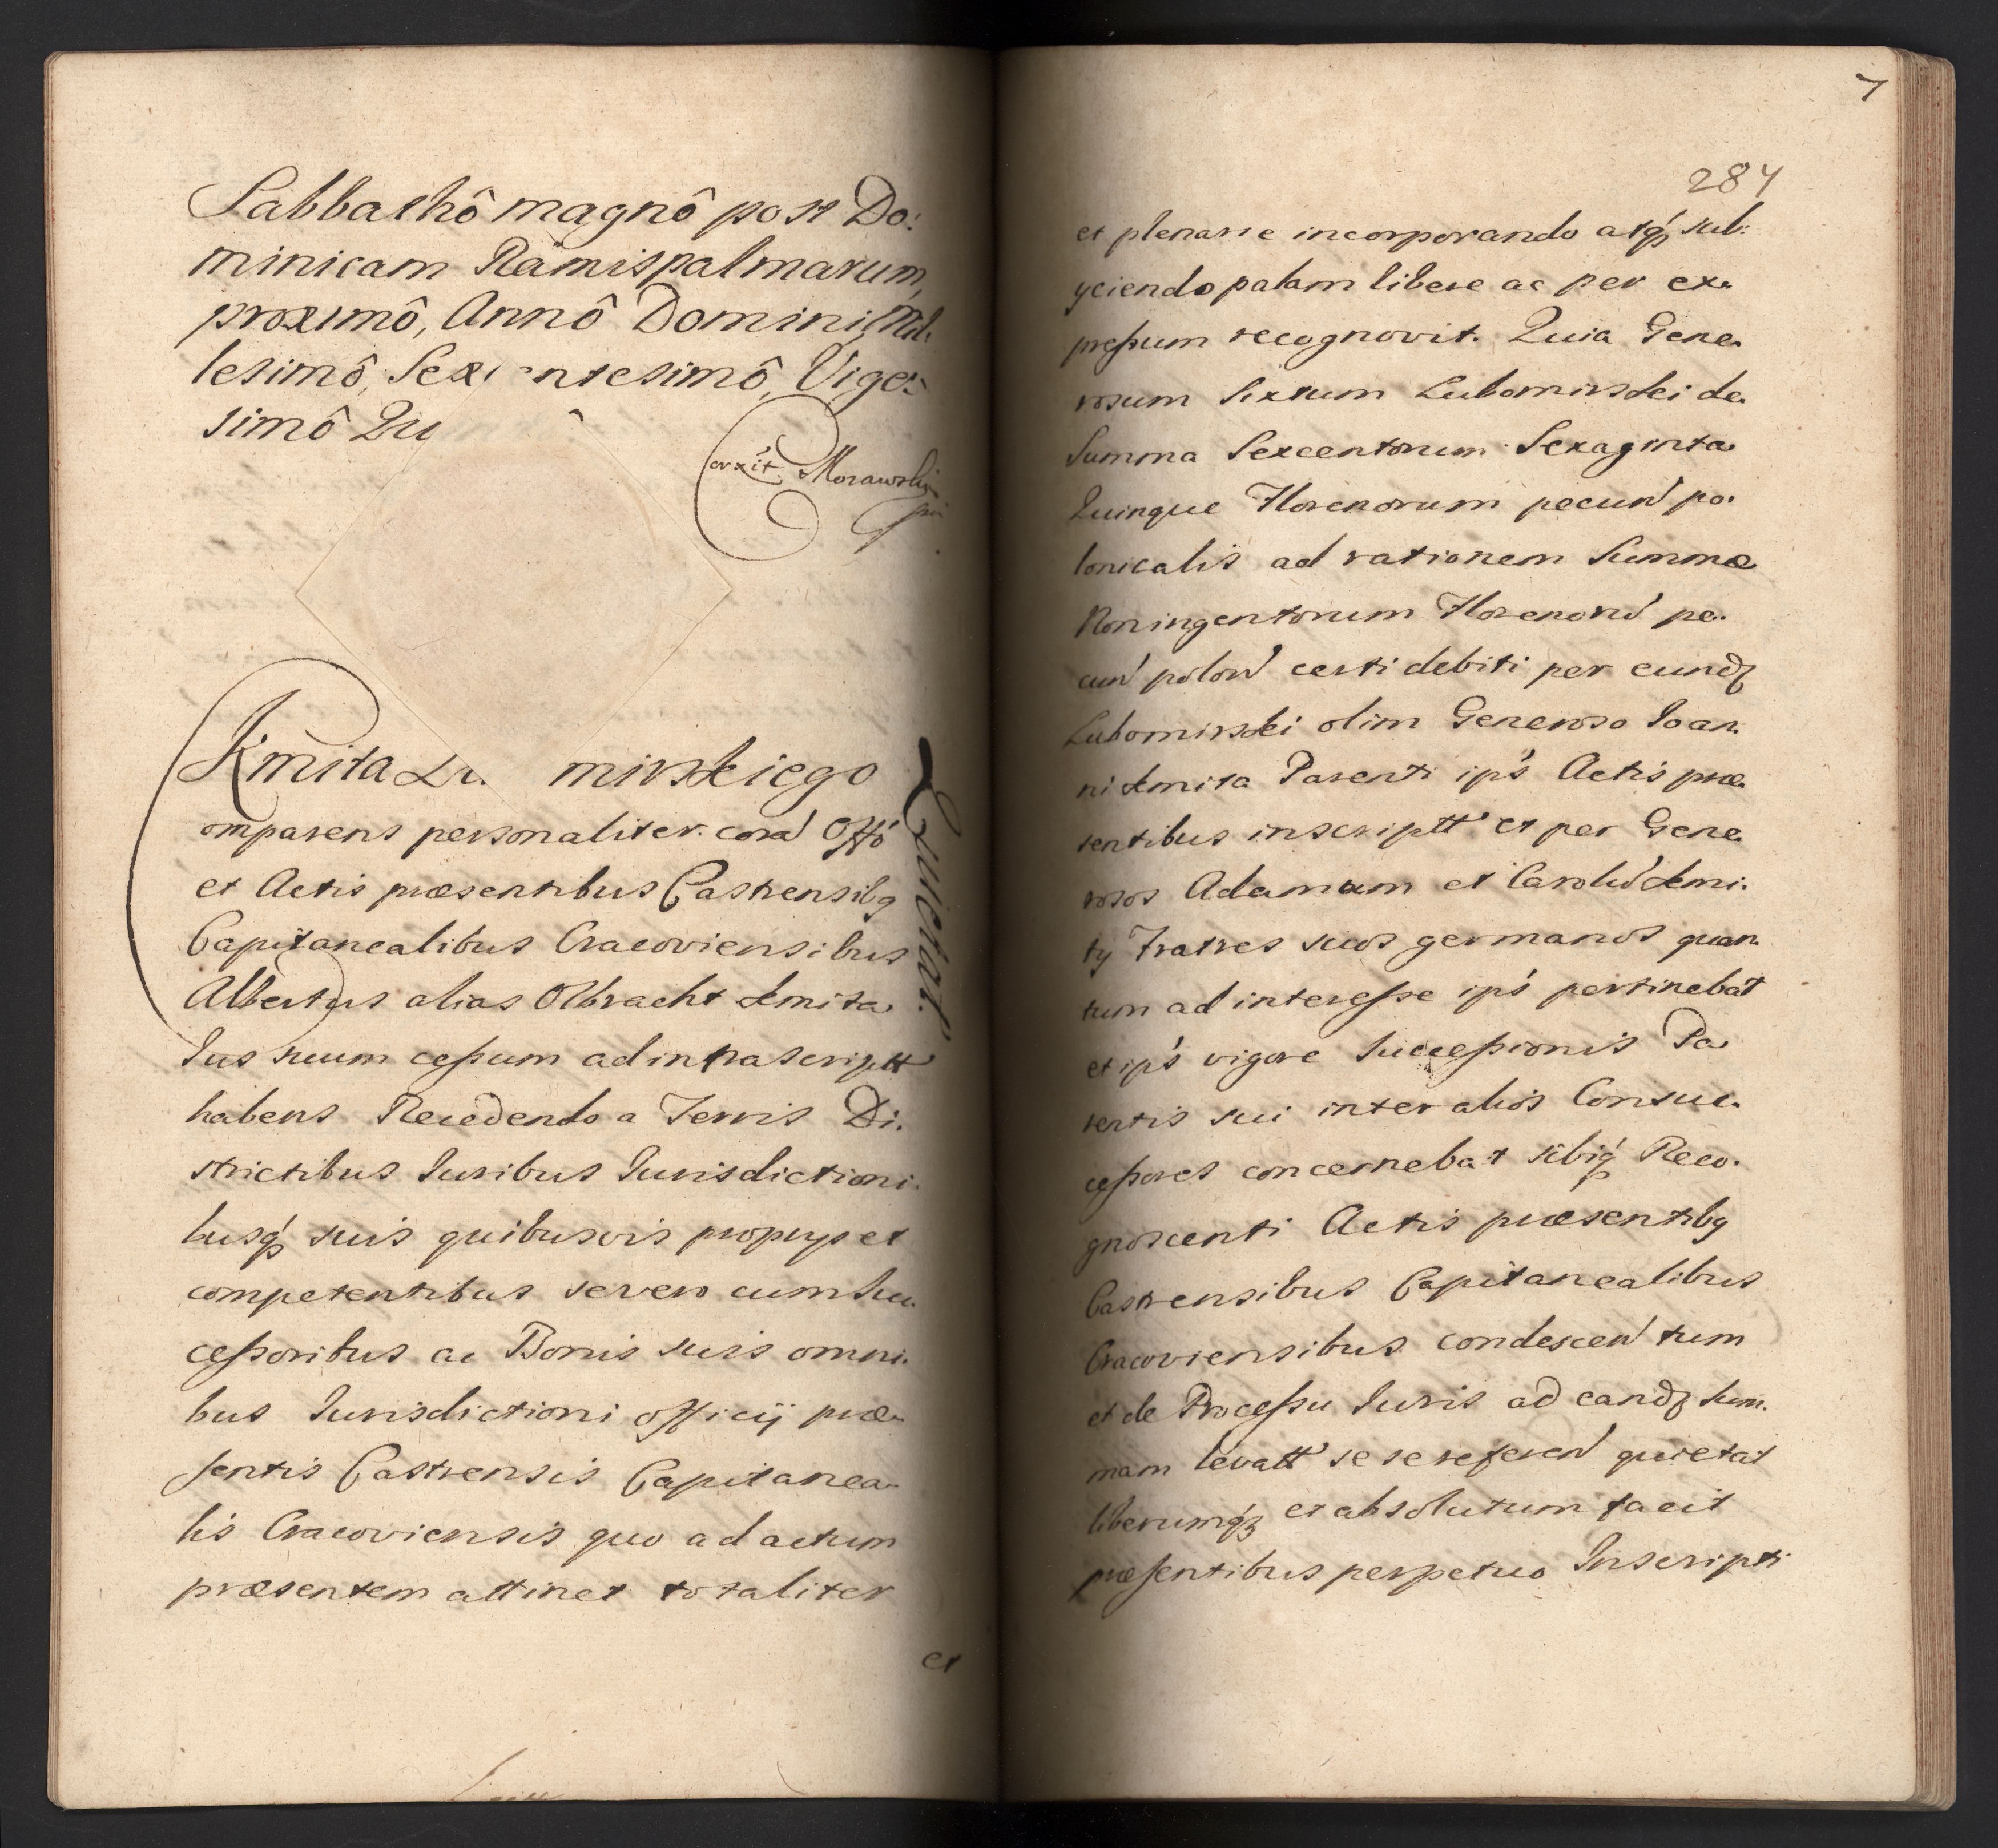 Sabbathô magnô post Do:
minicam Ramispalmarum,
proximô, Annô Domini, Mil.
lesimô, Sex entesimô, Viges:
simô Qu
Corrxit Morawski
Kmita Lu. mirskiego
Quietat.
omparens personaliter. corã Offô
et Actis præsentibus Castrensibq
Capitanealibus Cracoviensibus
Albertus alias Olbracht Kmita
Ius suum cessum ad infrascriptt
habens Recedendo a Terris Di.
strictibus Iuribus Iurisdictioni.
busq́ suis quibusvis proprys et
competentibus se vero cum Suc.
cessoribus ac Bonis suis omni.
bus Iurisdictioni officij præ.
sentis Castrensis Capitanea.
lis Cracoviensis quo ad actum
præsentem attinet totaliter
et
7
284
et plenarie incorporando atq́ sub:
yciendo palam libere ac per ex.
pressum recognovit. Quia Gene.
rosum Sixtum Lubomirski de
Summa Sexcentorum Sexaginta
Quinque Florenorum pecun̄ po.
lonicalis ad rationem Summæ
Noningentorum Florenorū pe.
cun̄ polon̄ certi debiti per eundꝫ
Lubomirski olim Generoso Ioan.
ni Kmita Parenti ips̄ Actis præ.
sentibus inscriptt et per Gene.
rosos Adamum et Carolū Kmi.
ty Fratres suos germanos quan.
tum ad interesse ips̄ pertinebat
et ips̄ vigore Successionis Pa
rentis sui inter alios Consuc.
cessores concernebat sibiq́ Reco.
gnoscenti Actis præsentibq
Castrensibus Capitanealibus
Cracoviensibus condescen̄ tum
et de Processu Iuris ad eandꝫ Sum.
mam levatt se se referen̄ quietat
liberumqꝫ et absolutum facit
præsentibus perpetuo Inscripti